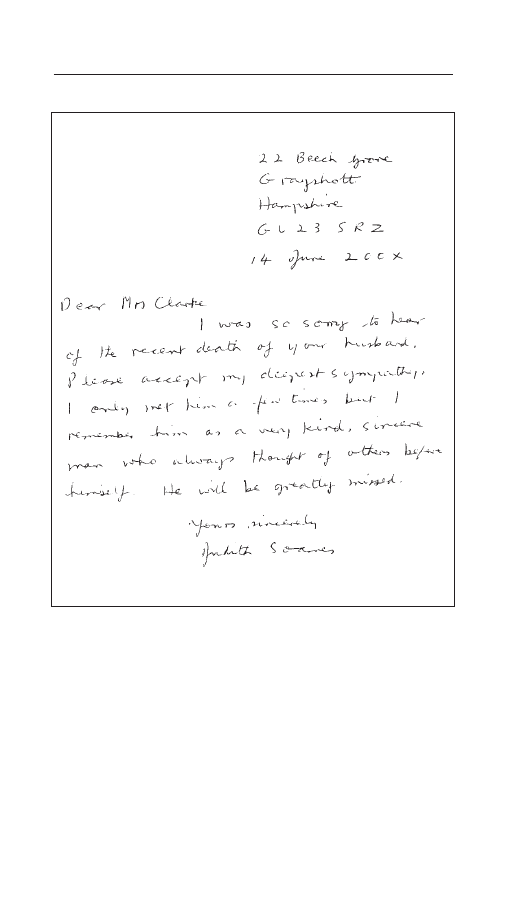 22 Beech Grove
Grayshott
Hampshire
GU23 5RZ
14 June 200X
Dear Mrs Clarke
I was so sorry to hear
of the recent death of your husband.
Please accept my deepest sympathy.
I only met him a few times but I
remember him as a very kind, sincere
man who always thought of others before
himself. He will be greatly missed.
Yours sincerely
Judith Soames